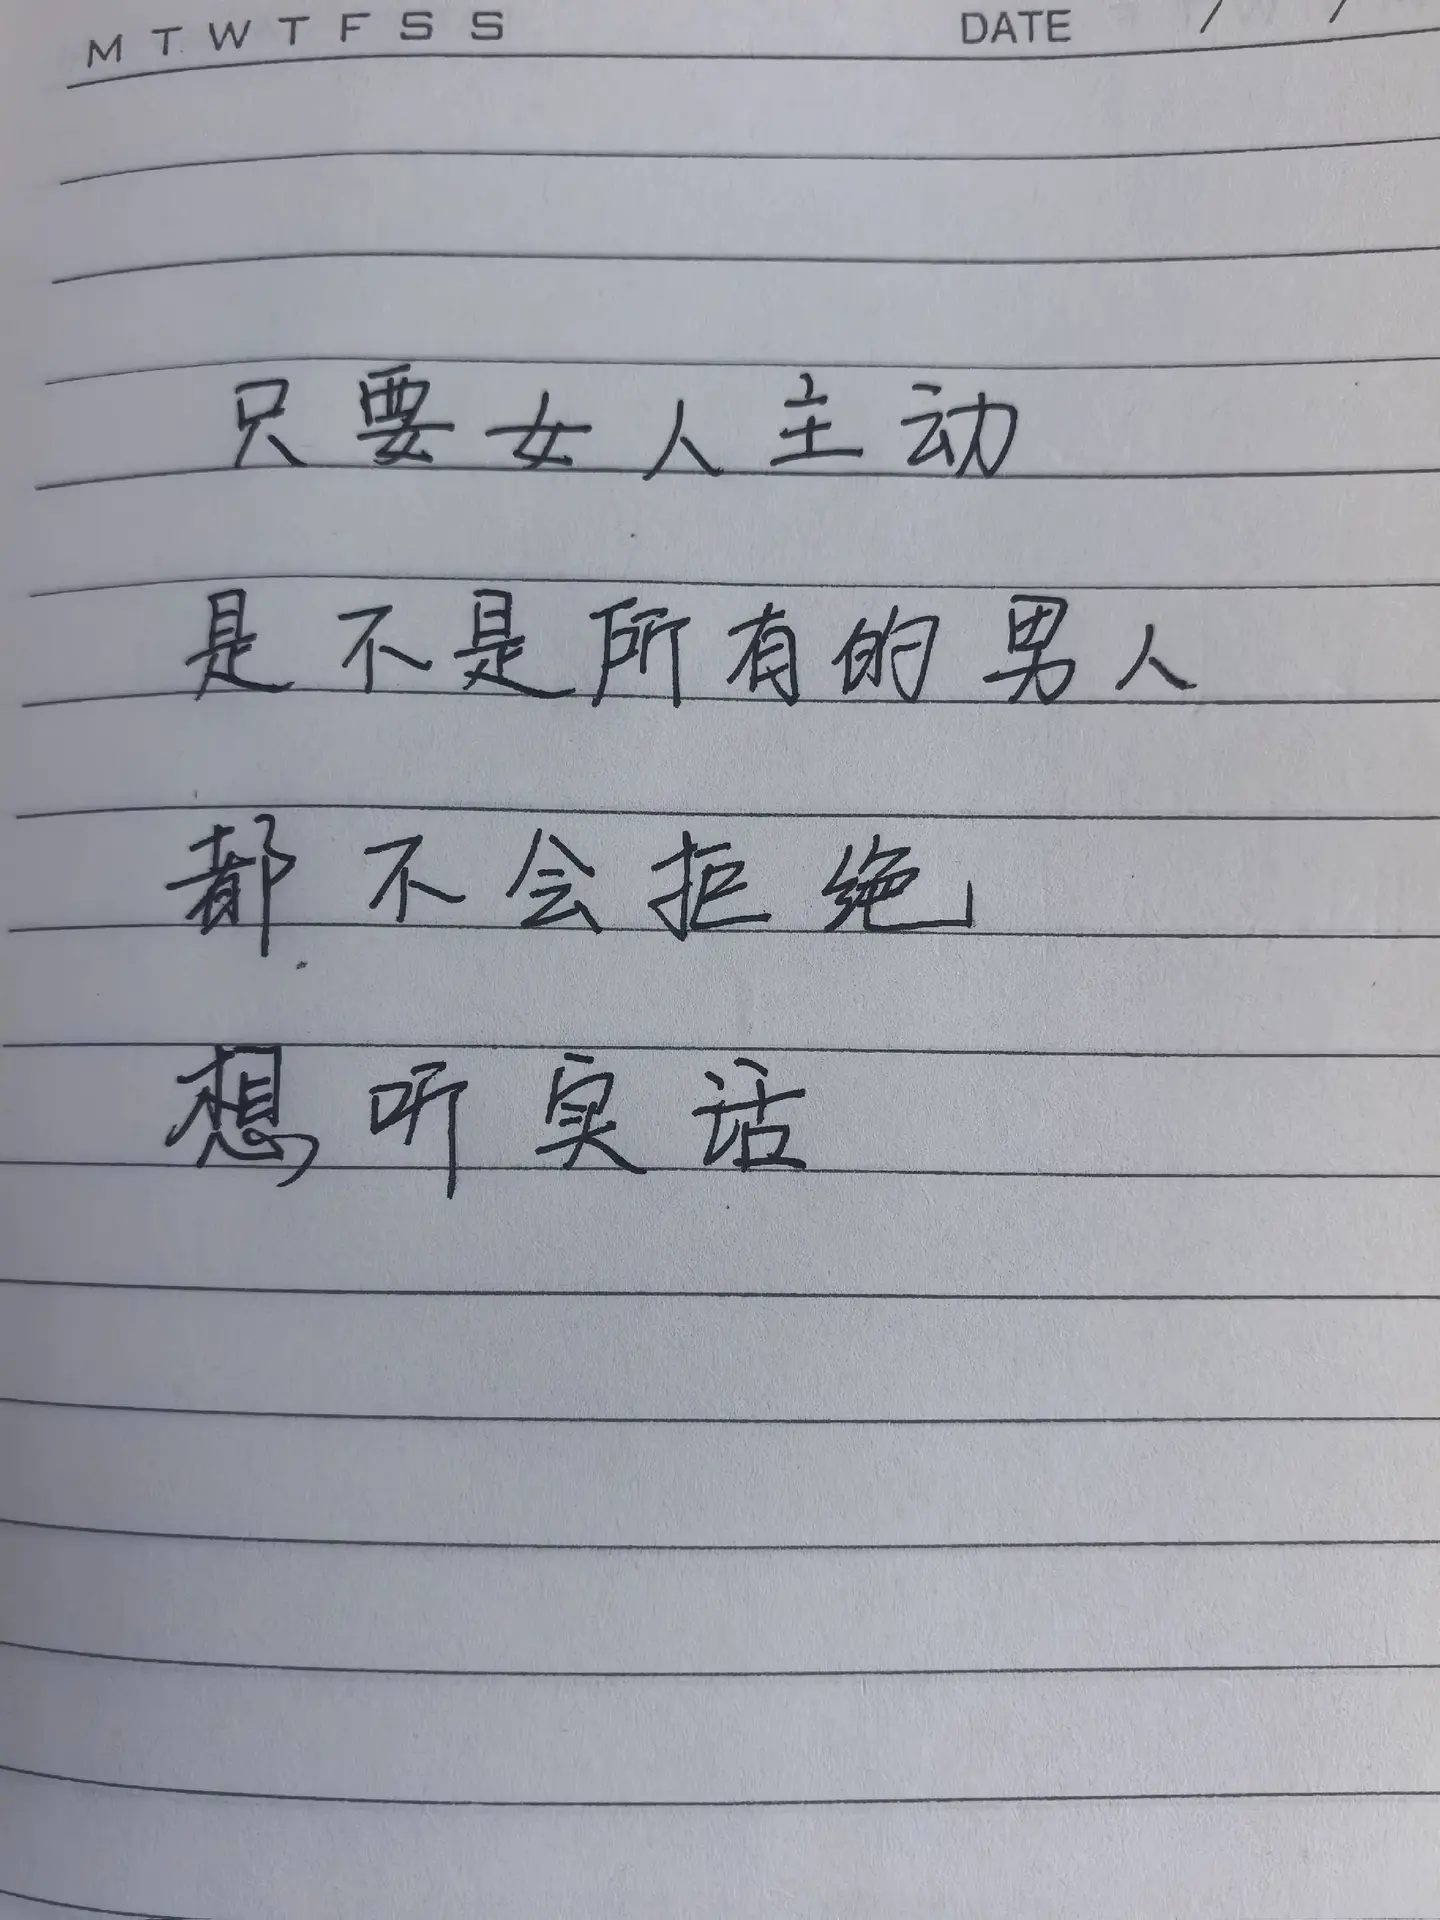 M T W T F S S DATE / /
只要女人主动
是不是所有的男人
都不会拒绝
想听实话